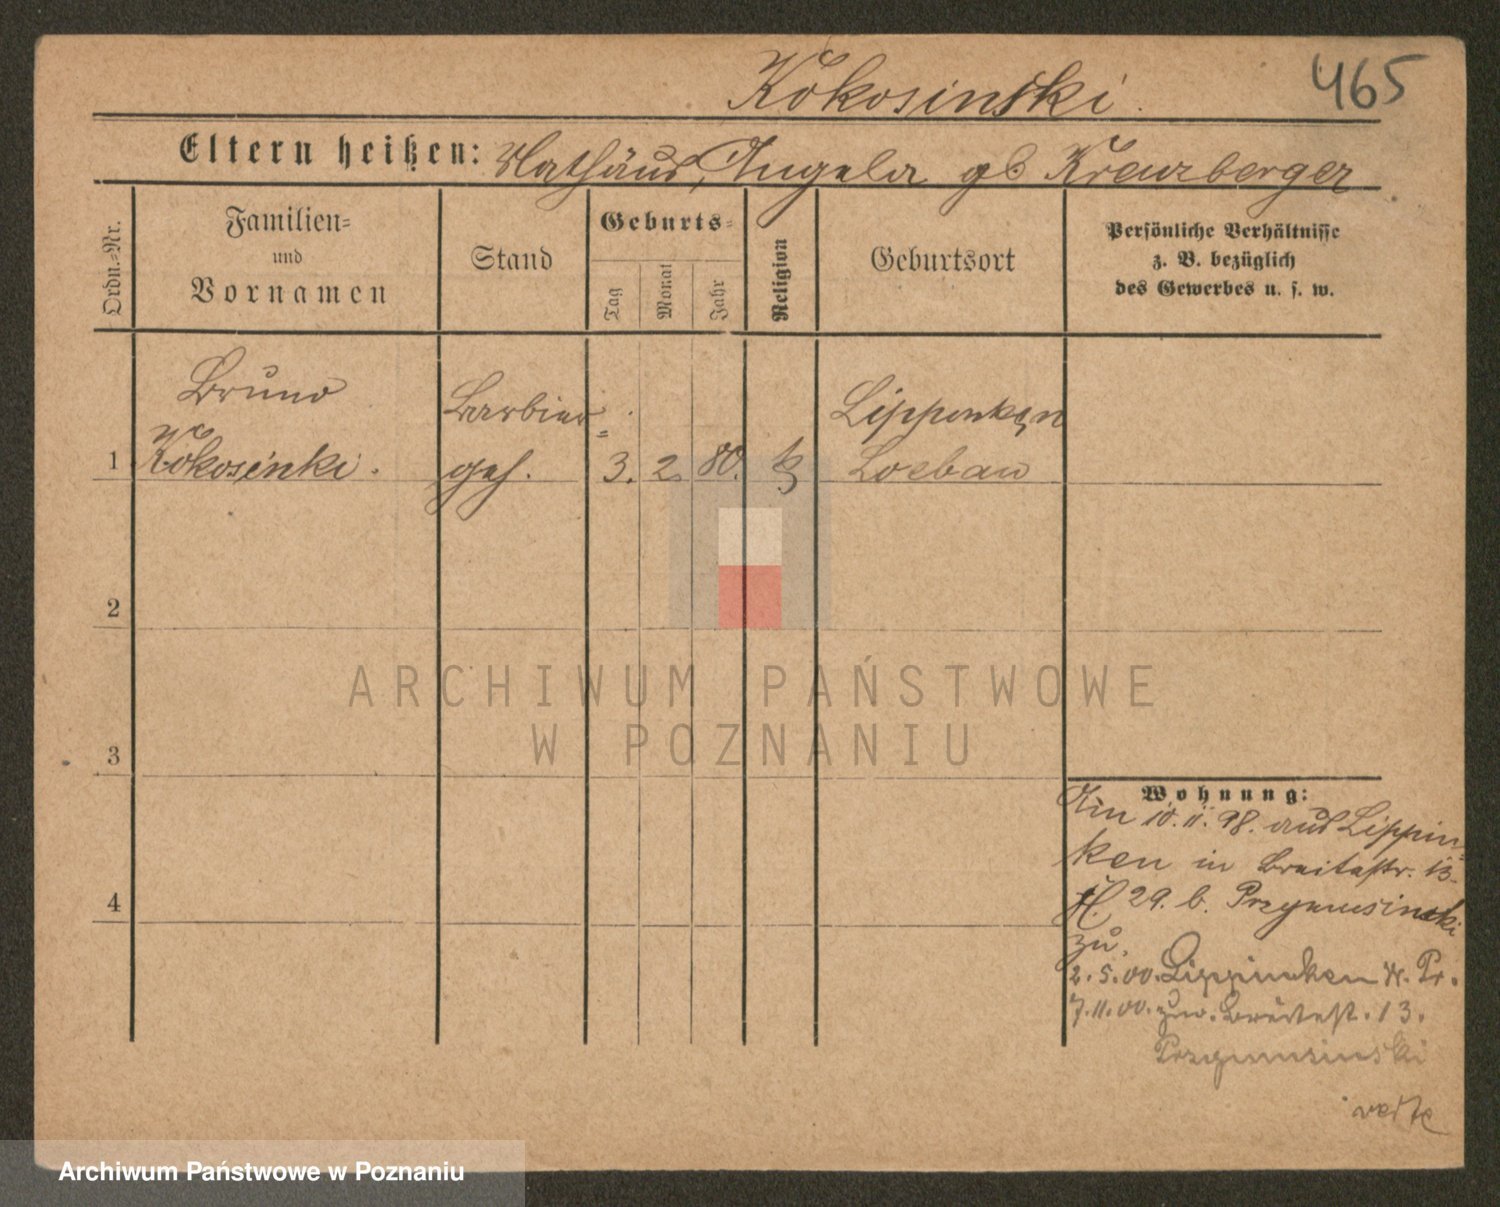 Kokosinski.
465
Eltern heißen: Mathäus, Angela gb Kreuzberger
Ordn.-Nr.
Familien-
und
Vornamen
Stand
Geburts-
Tag
Monat
Jahr
Religion
Geburtsort
Persönliche Verhältnisse
z. B. bezüglich
des Gewerbes u. s. w.
Bruno
Kokosinki.
Barbier=
geh.
1
3. 2. 80.
k
Lippinken
Loebau
2
3
4
ARCHIWUM PAŃSTWOWE
W POZNANIU
Wohnung:
Am 10.11.98. aus Lippin=
ken in Breitestr. 13
H. 29. b. Przymusinski
zu.
2.5.00. Lippinken W. Pr.
7.11.00. zur. Breitest. 13.
Przymusinski
verte
Archiwum Państwowe w Poznaniu